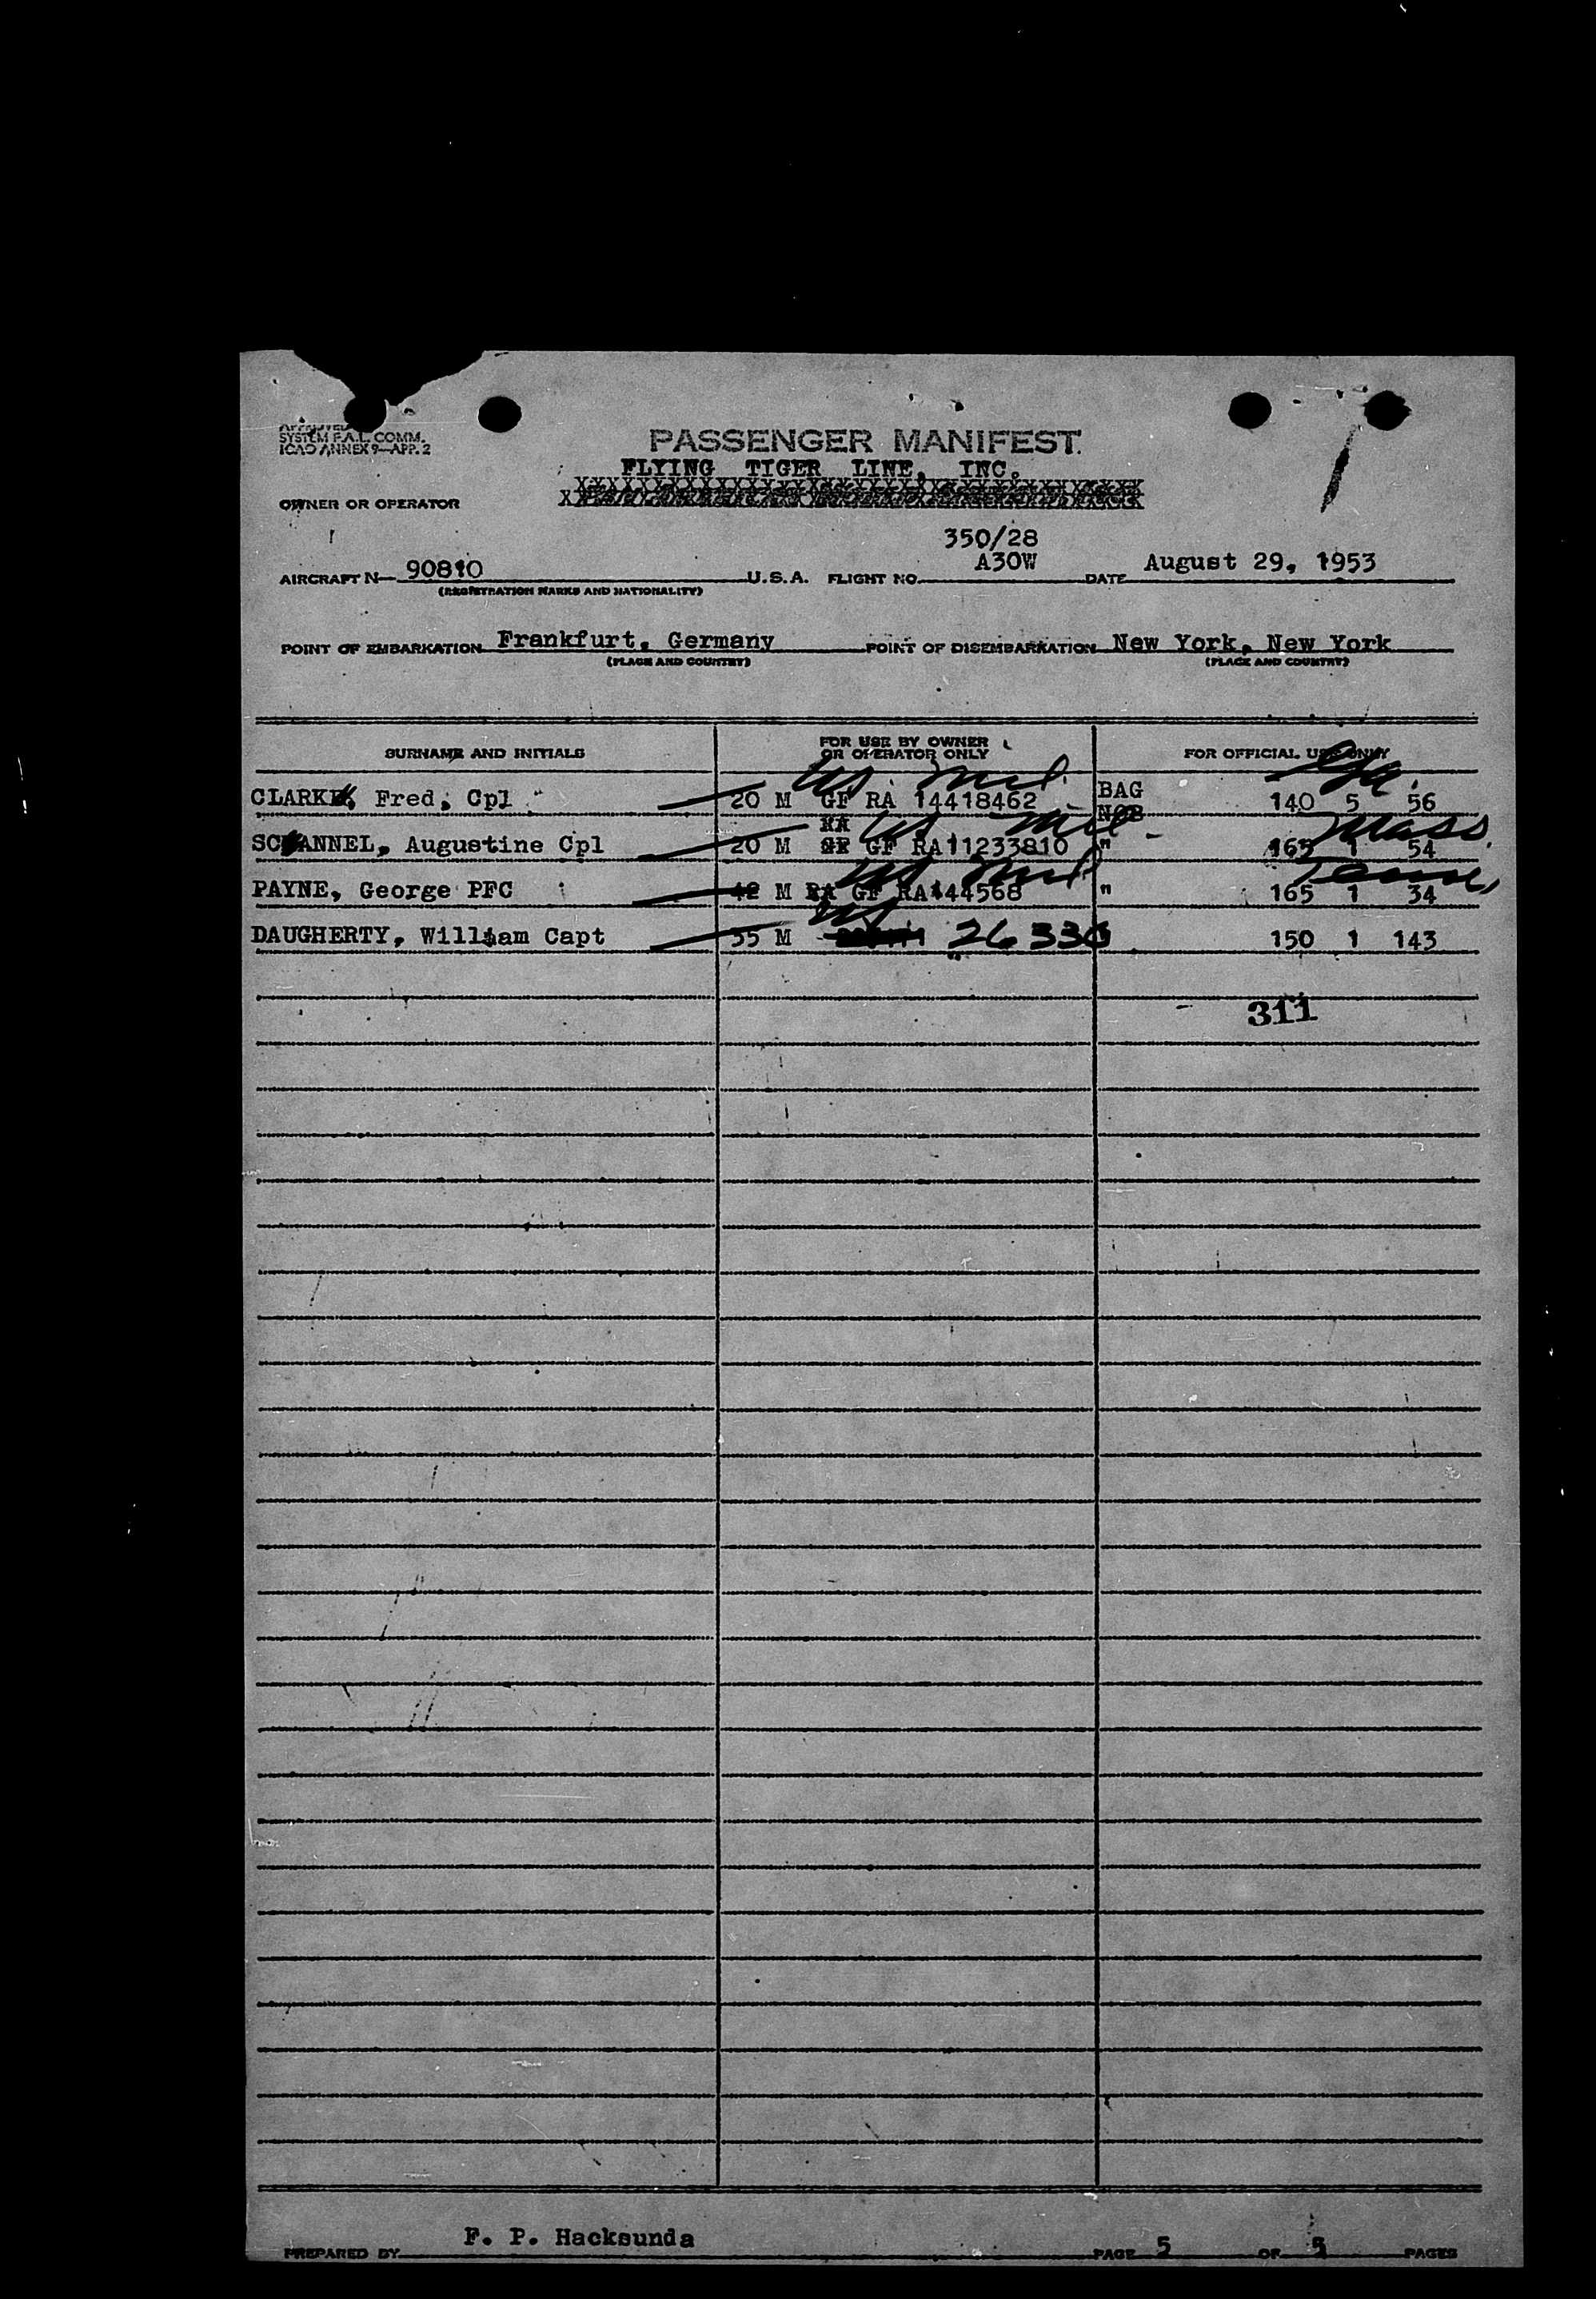 SYSTEM F.A.L. COMM.
ICAO ANNEX 9—APP. 2
PASSENGER MANIFEST
FLYING TIGER LINE, INC.
OWNER OR OPERATOR
350/28
AIRCRAFT N— 90810 U.S.A. FLIGHT NO. A30W DATE August 29, 1953
(REGISTRATION MARKS AND NATIONALITY)
POINT OF EMBARKATION Frankfurt, Germany POINT OF DISEMBARKATION New York, New York
(PLACE AND COUNTRY) (PLACE AND COUNTRY)
SURNAME AND INITIALS FOR USE BY OWNER OR OPERATOR ONLY FOR OFFICIAL USE ONLY
US Mil. Ga.
CLARK, Fred, Cpl 20 M GF RA 14418462 BAG NOB 140 5 56
RA US Mil Mass.
SCANNEL, Augustine Cpl 20 M GF RA11233810 " 165 1 54
US Mil Tenn,
PAYNE, George PFC 42 M RA GF RA144568 " 165 1 34
US
DAUGHERTY, William Capt 35 M 26336 150 1 143
311
PREPARED BY F. P. Hacksunda PAGE 5 OF 5 PAGES